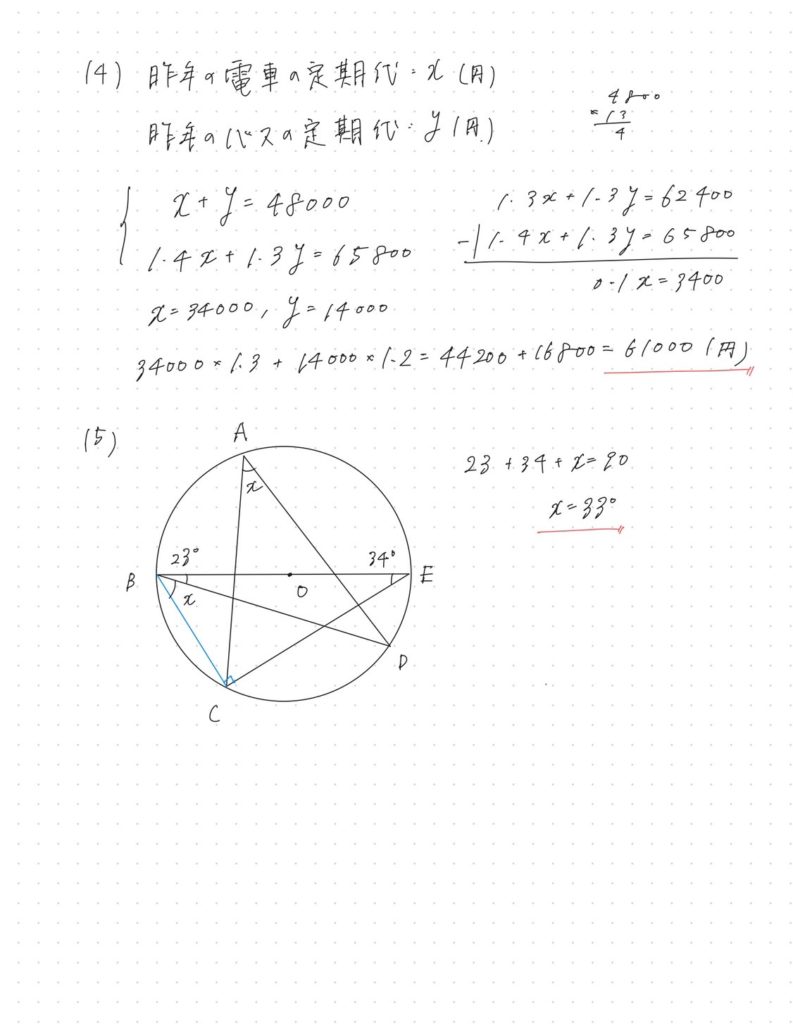 (4) 昨年の電車の定期代：x (円)
昨年のバスの定期代：y (円)
4800
×13
4
x + y = 48000
1.4x + 1.3y = 65800
x = 34000, y = 14000
1.3x + 1.3y = 62400
-) 1.4x + 1.3y = 65800
0.1x = 3400
34000 × 1.3 + 14000 × 1.2 = 44200 + 16800 = 61000 (円)
(5)
A
x
23°
34°
B
x
O
E
D
C
23 + 34 + x = 90
x = 33°